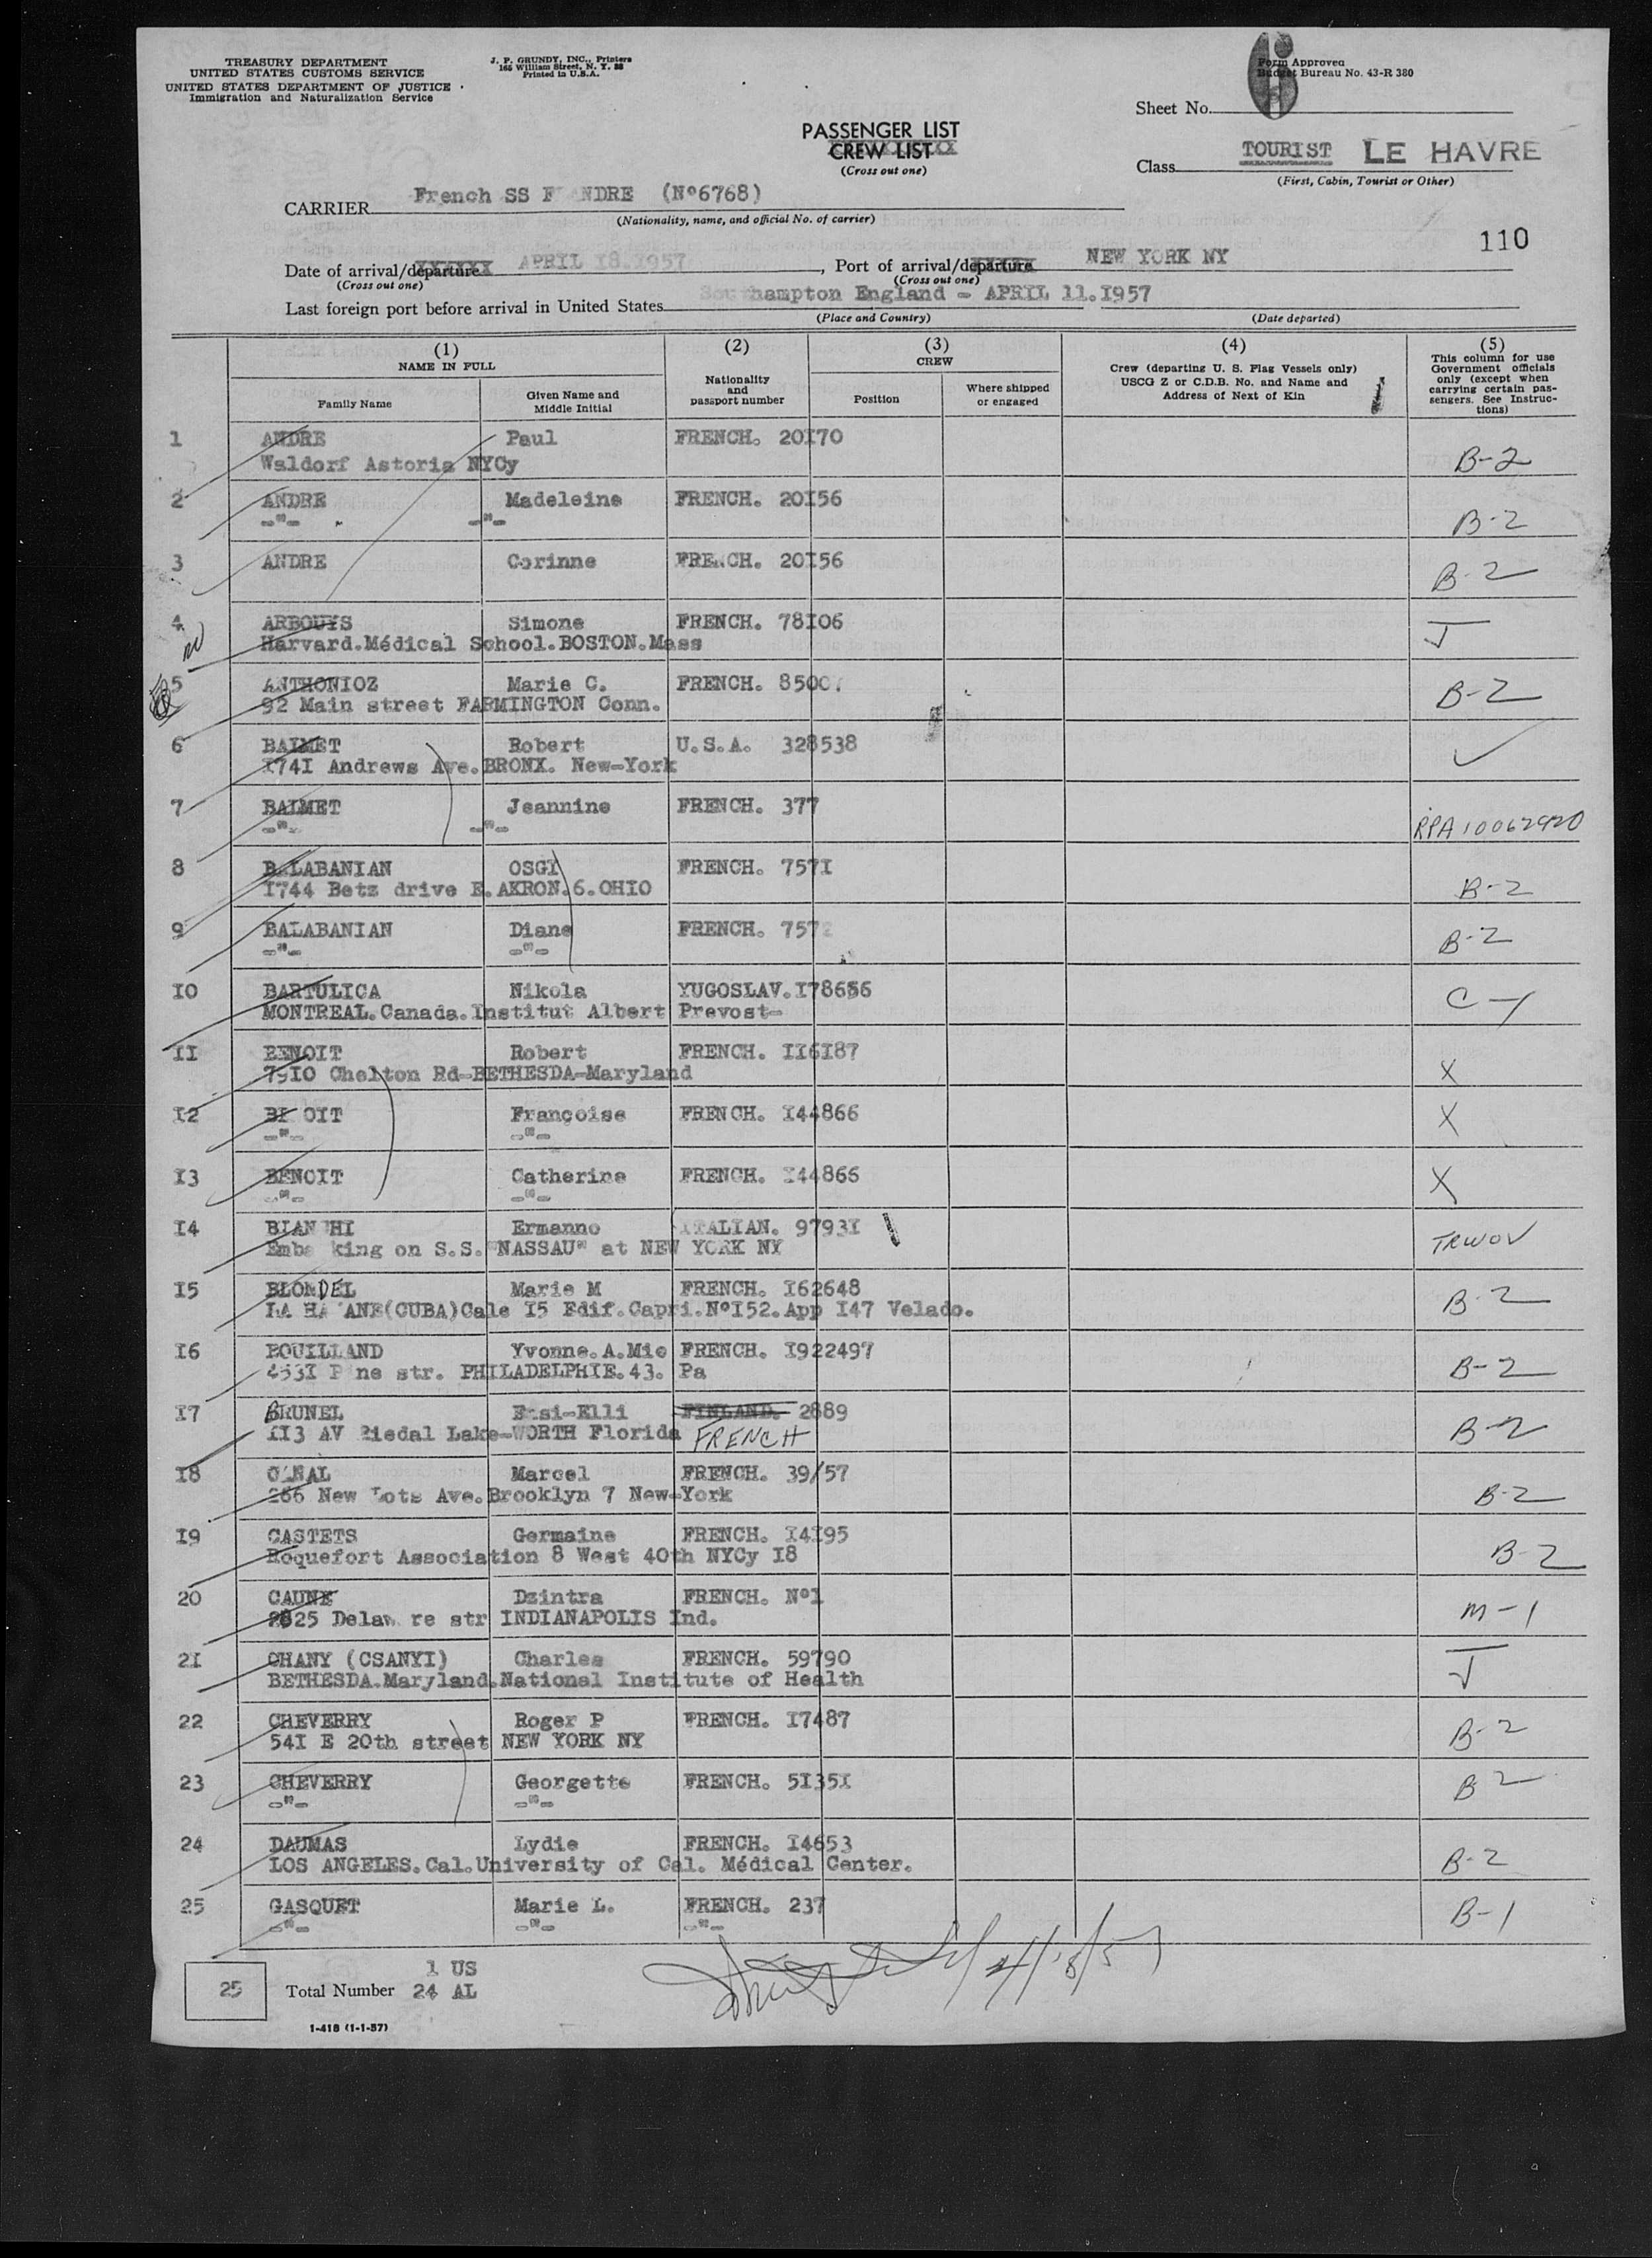 TREASURY DEPARTMENT
UNITED STATES CUSTOMS SERVICE
UNITED STATES DEPARTMENT OF JUSTICE
Immigration and Naturalization Service
J. P. GRUNDY, INC., Printers
165 William Street, N. Y. 38
Printed in U.S.A.
Form Approved
Budget Bureau No. 43-R 380
Sheet No. 6
PASSENGER LIST
CREW LIST
(Cross out one)
Class TOURIST LE HAVRE
(First, Cabin, Tourist or Other)
CARRIER French SS F ANDRE (Nº6768)
(Nationality, name, and official No. of carrier)
110
Date of arrival/departure APRIL 18.1957, Port of arrival/departure NEW YORK NY
(Cross out one) (Cross out one)
Last foreign port before arrival in United States Southampton England - APRIL 11.1957
(Place and Country) (Date departed)
(1) (2) (3) (4) (5)
NAME IN FULL
Family Name
Given Name and Middle Initial
Nationality and passport number
CREW
Position
Where shipped or engaged
Crew (departing U. S. Flag Vessels only)
USCG Z or C.D.B. No. and Name and
Address of Next of Kin
This column for use
Government officials
only (except when
carrying certain pas-
sengers. See Instruc-
tions)
1 ANDRE Paul FRENCH. 20I70
Waldorf Astoria NYCy B-2
2 ANDRE Madeleine FRENCH. 20I56
-"- -"- B-2
3 ANDRE Corinne FRENCH. 20I56 B-2
4 ARBOUYS Simone FRENCH. 78I06
Harvard.Médical School.BOSTON.Mass
5 ANTHONIOZ Marie C. FRENCH. 8500
92 Main street FARMINGTON Conn. B-2
6 BALMET Robert U.S.A. 328538
I74I Andrews Ave.BRONX. New-York
7 BALMET Jeannine FRENCH. 377
-"- -"- RPA 10062920
8 BALABANIAN OSGI FRENCH. 757I
I744 Betz drive E.AKRON.6.OHIO B-2
9 BALABANIAN Diane FRENCH. 7572
-"- -"- B-2
IO BARTULICA Nikola YUGOSLAV.I78656
MONTREAL.Canada.Institut Albert Prevost- C-1
II BENOIT Robert FRENCH. II6I87
79IO Chelton Rd-BETHESDA-Maryland X
I2 BE OIT Françoise FRENCH. I44866
-"- -"- X
I3 BENOIT Catherine FRENCH. I44866
-"- -"- X
I4 BIAN HI Ermanno ITALIAN. 9793I
Emba king on S.S."NASSAU" at NEW YORK NY TRWOV
I5 BLONDEL Marie M FRENCH. I62648
LA HA ANE(CUBA)Cale I5 Edif.Capri.NºI52.App I47 Velado. B-2
I6 BOUILLAND Yvonne.A.Mie FRENCH. I922497
453I P ne str. PHILADELPHIE.43. Pa B-2
I7 BRUNEL FINLAND. 2889
II3 AV Riedal Lake-WORTH Florida FRENCH B-2
I8 CANAL Marcel FRENCH. 39/57
266 New Lots Ave.Brooklyn 7 New-York B-2
I9 CASTETS Germaine FRENCH. I4I95
Roquefort Association 8 West 40th NYCy I8 B-2
20 CAUNE Dzintra FRENCH. Nº1
2825 Delaw re str INDIANAPOLIS Ind. M-1
2I CHANY (CSANYI) Charles FRENCH. 59790
BETHESDA.Maryland.National Institute of Health
22 CHEVERRY Roger P FRENCH. I7487
54I E 20th street NEW YORK NY B-2
23 CHEVERRY Georgette FRENCH. 5I35I
-"- -"- B 2
24 DAUMAS Lydie FRENCH. I4653
LOS ANGELES.Cal.University of Cal. Médical Center. B-2
25 GASQUET Marie L. FRENCH. 237
-"- -"- -"- B-1
25 Total Number 1 US
24 AL
4/18/57
I-418 (1-1-57)